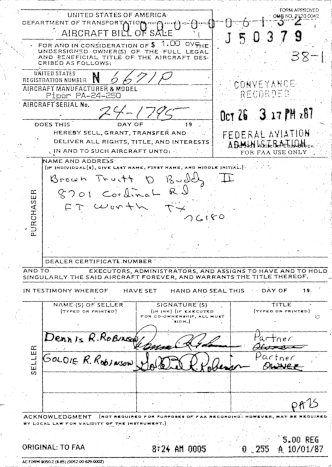 UNITED STATES OF AMERICA
DEPARTMENT OF TRANSPORTATION
0 0 0 0 0 0 6 1 3 2
FORM APPROVED
AIRCRAFT BILL OF SALE
J50379
FOR AND IN CONSIDERATION OF $ 1.00 OVC THE
UNDERSIGNED OWNER(S) OF THE FULL LEGAL
AND BENEFICIAL TITLE OF THE AIRCRAFT DES-
CRIBED AS FOLLOWS:
38-1
UNITED STATES
REGISTRATION NUMBER N 6671P
AIRCRAFT MANUFACTURER & MODEL
Piper PA-24-250
AIRCRAFT SERIAL No.
24-1795
CONVEYANCE
RECORDED
OCT 26 3 17 PM '87
FEDERAL AVIATION
ADMINISTRATION
DOES THIS DAY OF 19
HEREBY SELL, GRANT, TRANSFER AND
DELIVER ALL RIGHTS, TITLE, AND INTERESTS
IN AND TO SUCH AIRCRAFT UNTO:
FOR FAA USE ONLY
PURCHASER
NAME AND ADDRESS
(IF INDIVIDUAL(S), GIVE LAST NAME, FIRST NAME, AND MIDDLE INITIAL.)
Brown Truitt D Buddy II
8701 Cardinal Rd
FT Worth Tx
76180
DEALER CERTIFICATE NUMBER
AND TO EXECUTORS, ADMINISTRATORS, AND ASSIGNS TO HAVE AND TO HOLD
SINGULARLY THE SAID AIRCRAFT FOREVER, AND WARRANTS THE TITLE THEREOF.
IN TESTIMONY WHEREOF HAVE SET HAND AND SEAL THIS DAY OF 19
SELLER
NAME (S) OF SELLER
(TYPED OR PRINTED)
SIGNATURE (S)
(IN INK) (IF EXECUTED
FOR CO-OWNERSHIP, ALL MUST
SIGN.)
TITLE
(TYPED OR PRINTED)
Dennis R. Robinson
Dennis R Robinson
Partner
OWNER
GOLDIE R. ROBINSON
Goldie R. Robinson
Partner
OWNER
PA 25
ACKNOWLEDGMENT (NOT REQUIRED FOR PURPOSES OF FAA RECORDING: HOWEVER, MAY BE REQUIRED
BY LOCAL LAW FOR VALIDITY OF THE INSTRUMENT.)
5.00 REG
ORIGINAL: TO FAA
8:24 AM 0005
0 255 A 10/01/87
AC FORM 8050-2 (8-85) (0052-00-629-0002)